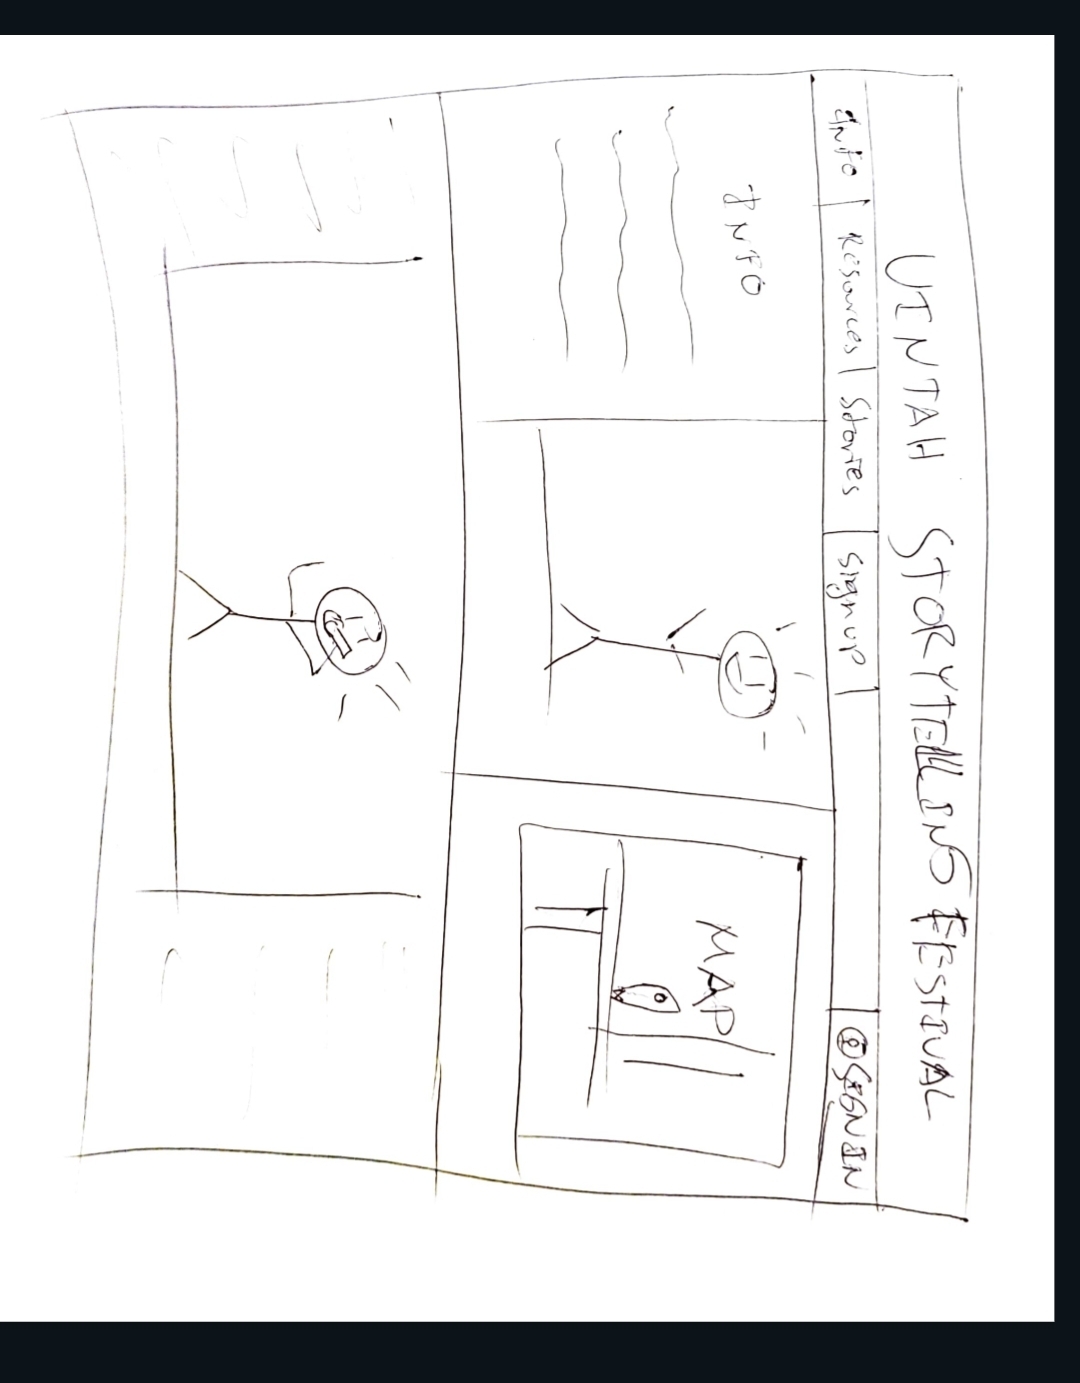 UINTAH STORYTELLING FESTIVAL
INFO Resources Stories Signup SIGN IN
INFO
MAP